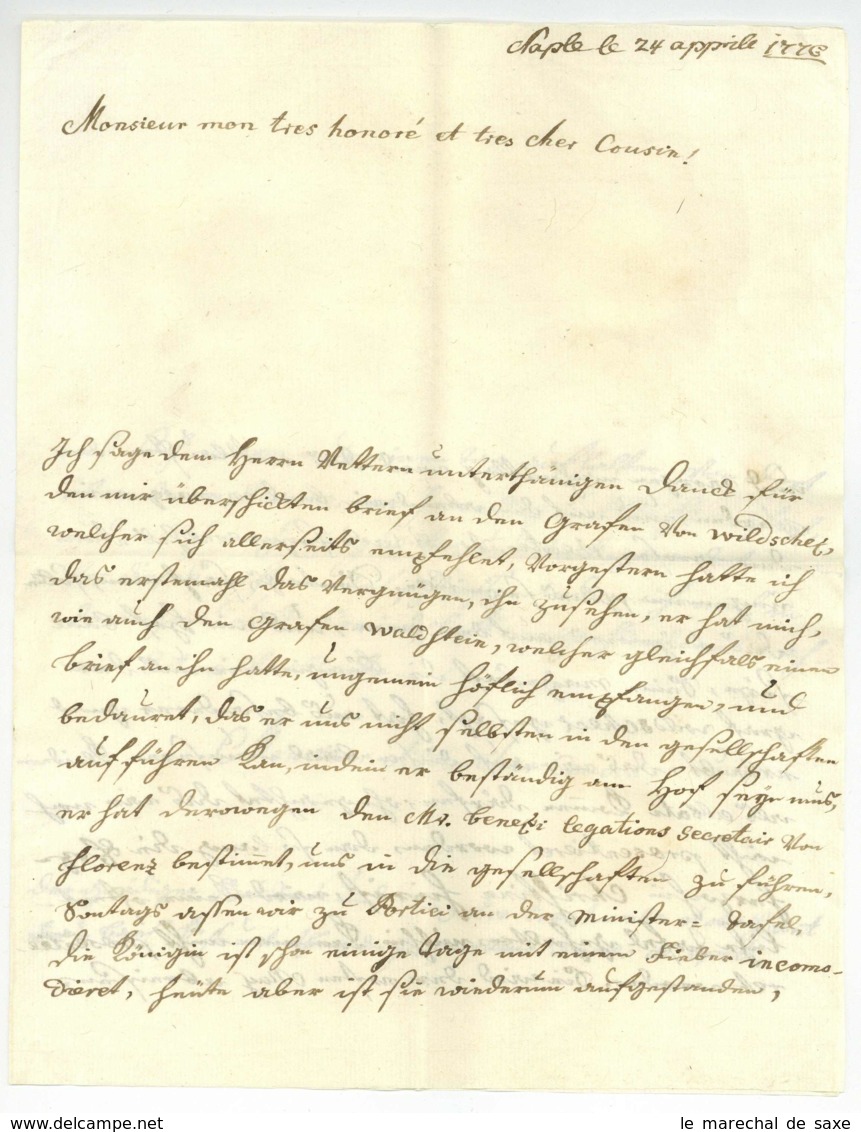 Naple le 24 apprill 1776
Monsieur mon tres honoré et tres cher Cousin!
Ich sage dem Herrn Vettern unterthänigen Danck für
den mir überschickten brief an den Grafen von Wildschek,
welcher sich allerseits empfehlet, Vorgestern hatte ich
das erstemahl das Vergnügen, ihn zusehen, er hat mich,
wie auch den Grafen Waldstein, welcher gleichfals einen
brief an ihn hatte, ungemein höflich empfangen, und
bedauret, das er uns nicht selbsten in den gesellschaften
aufführen kan, indem er beständig am Hof seyn mus,
er hat derowegen den Mr. Benesi legations Secretair von
Florenz bestimmet, uns in die gesellschaften zu führen,
Sontags assen wir zu Portici an der Minister= Tafel,
die Königin ist schon einige Tage mit einem Fieber incomo-
diret, heüte aber ist sie wiederum aufgestanden,
le marechal de saxe